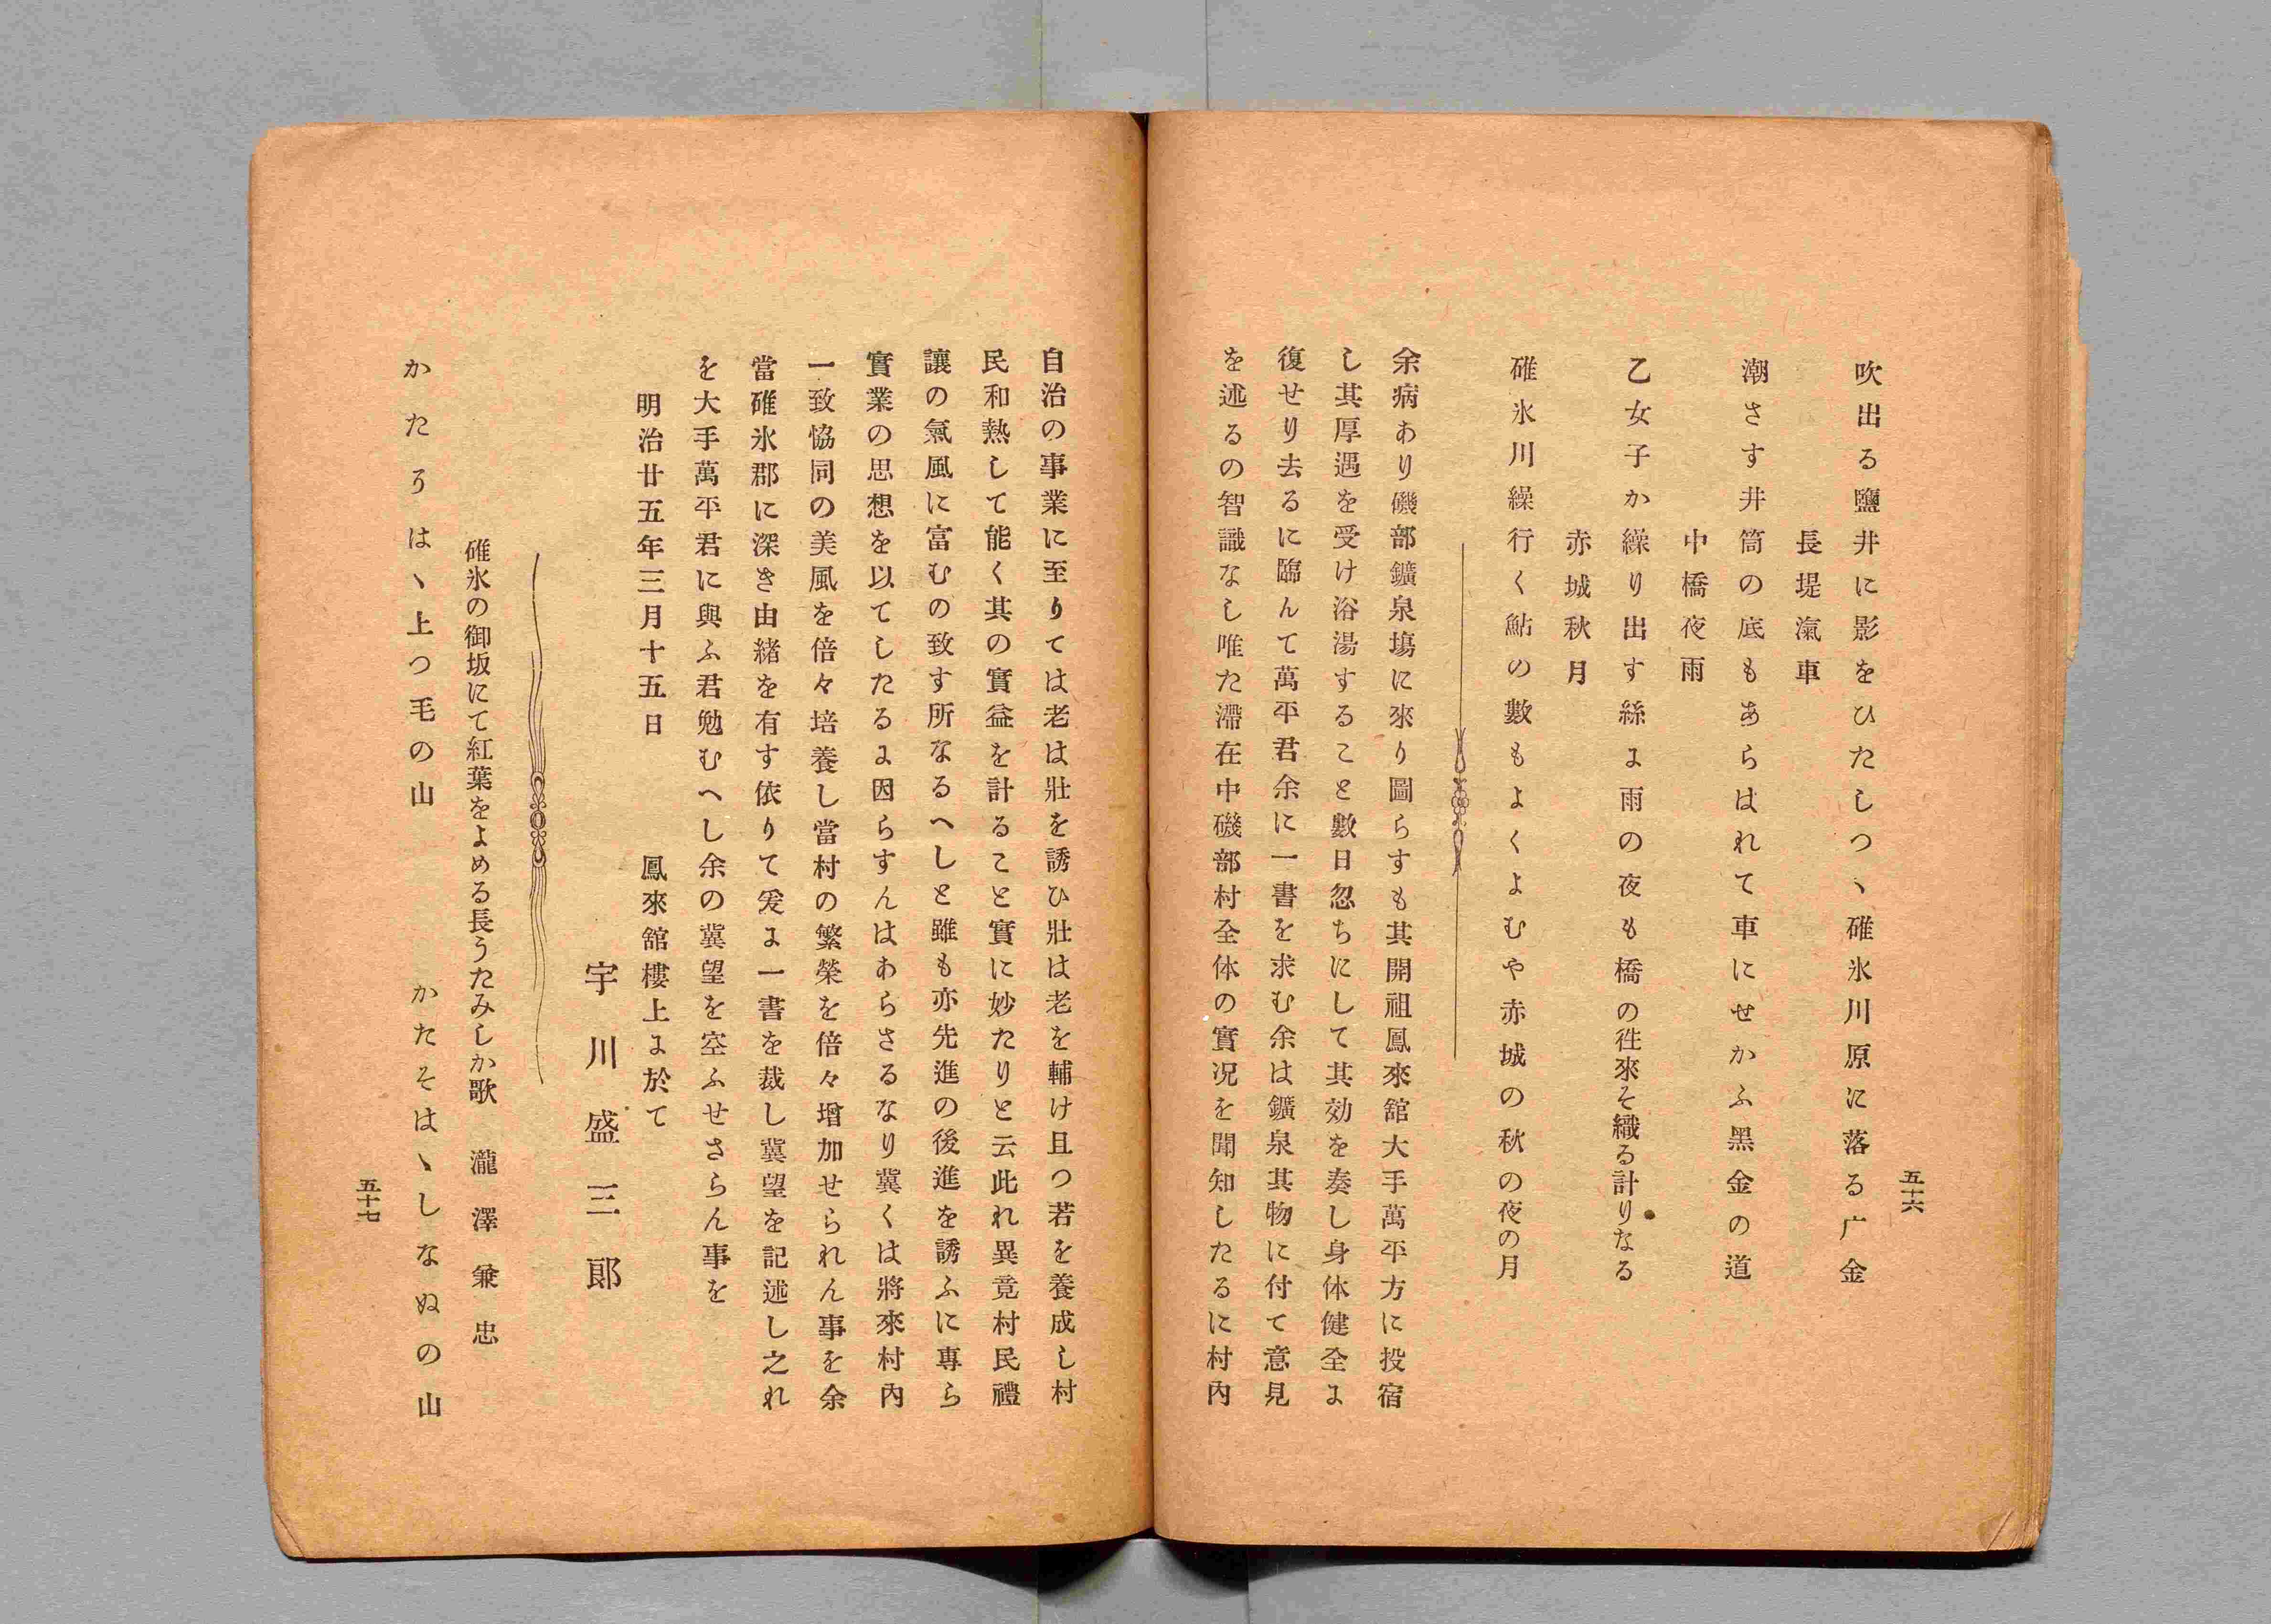 五十六
吹出る鹽井に影をひたしつヽ碓氷川原に落る广金
長堤滊車
潮さす井筒の底もあらはれて車にせかふ黑金の道
中橋夜雨
乙女子か繰り出す絲よ雨の夜も橋の徃來そ織る計りなる
赤城秋月
碓氷川繰行く鮎の數もよくよむや赤城の秋の夜の月
余病あり磯部鑛泉塲に來り圖らすも其開祖鳳來舘大手萬平方に投宿
し其厚遇を受け浴湯すること數日忽ちにして其効を奏し身体健全よ
復せり去るに臨んて萬平君余に一書を求む余は鑛泉其物に付て意見
を述るの智識なし唯た滯在中磯部村全体の實况を聞知したるに村內
自治の事業に至りては老は壯を誘ひ壯は老を輔け且つ若を養成し村
民和熱して能く其の實益を計ること實に妙たりと云此れ異竟村民禮
讓の氣風に富むの致す所なるへしと雖も亦先進の後進を誘ふに專ら
實業の思想を以てしたるよ因らすんはあらさるなり冀くは將來村內
一致恊同の美風を倍々培養し當村の繁榮を倍々增加せられん事を余
當碓氷郡に深き由緒を有す依りて爰よ一書を裁し冀望を記述し之れ
を大手萬平君に與ふ君勉むへし余の冀望を空ふせさらん事を
明治廿五年三月十五日　　鳳來舘樓上よ於て
宇川盛三郞
碓氷の御坂にて紅葉をよめる長うたみしか歌　瀧澤兼忠
かたろはヽ上つ毛の山　　かたそはヽしなぬの山
五十七